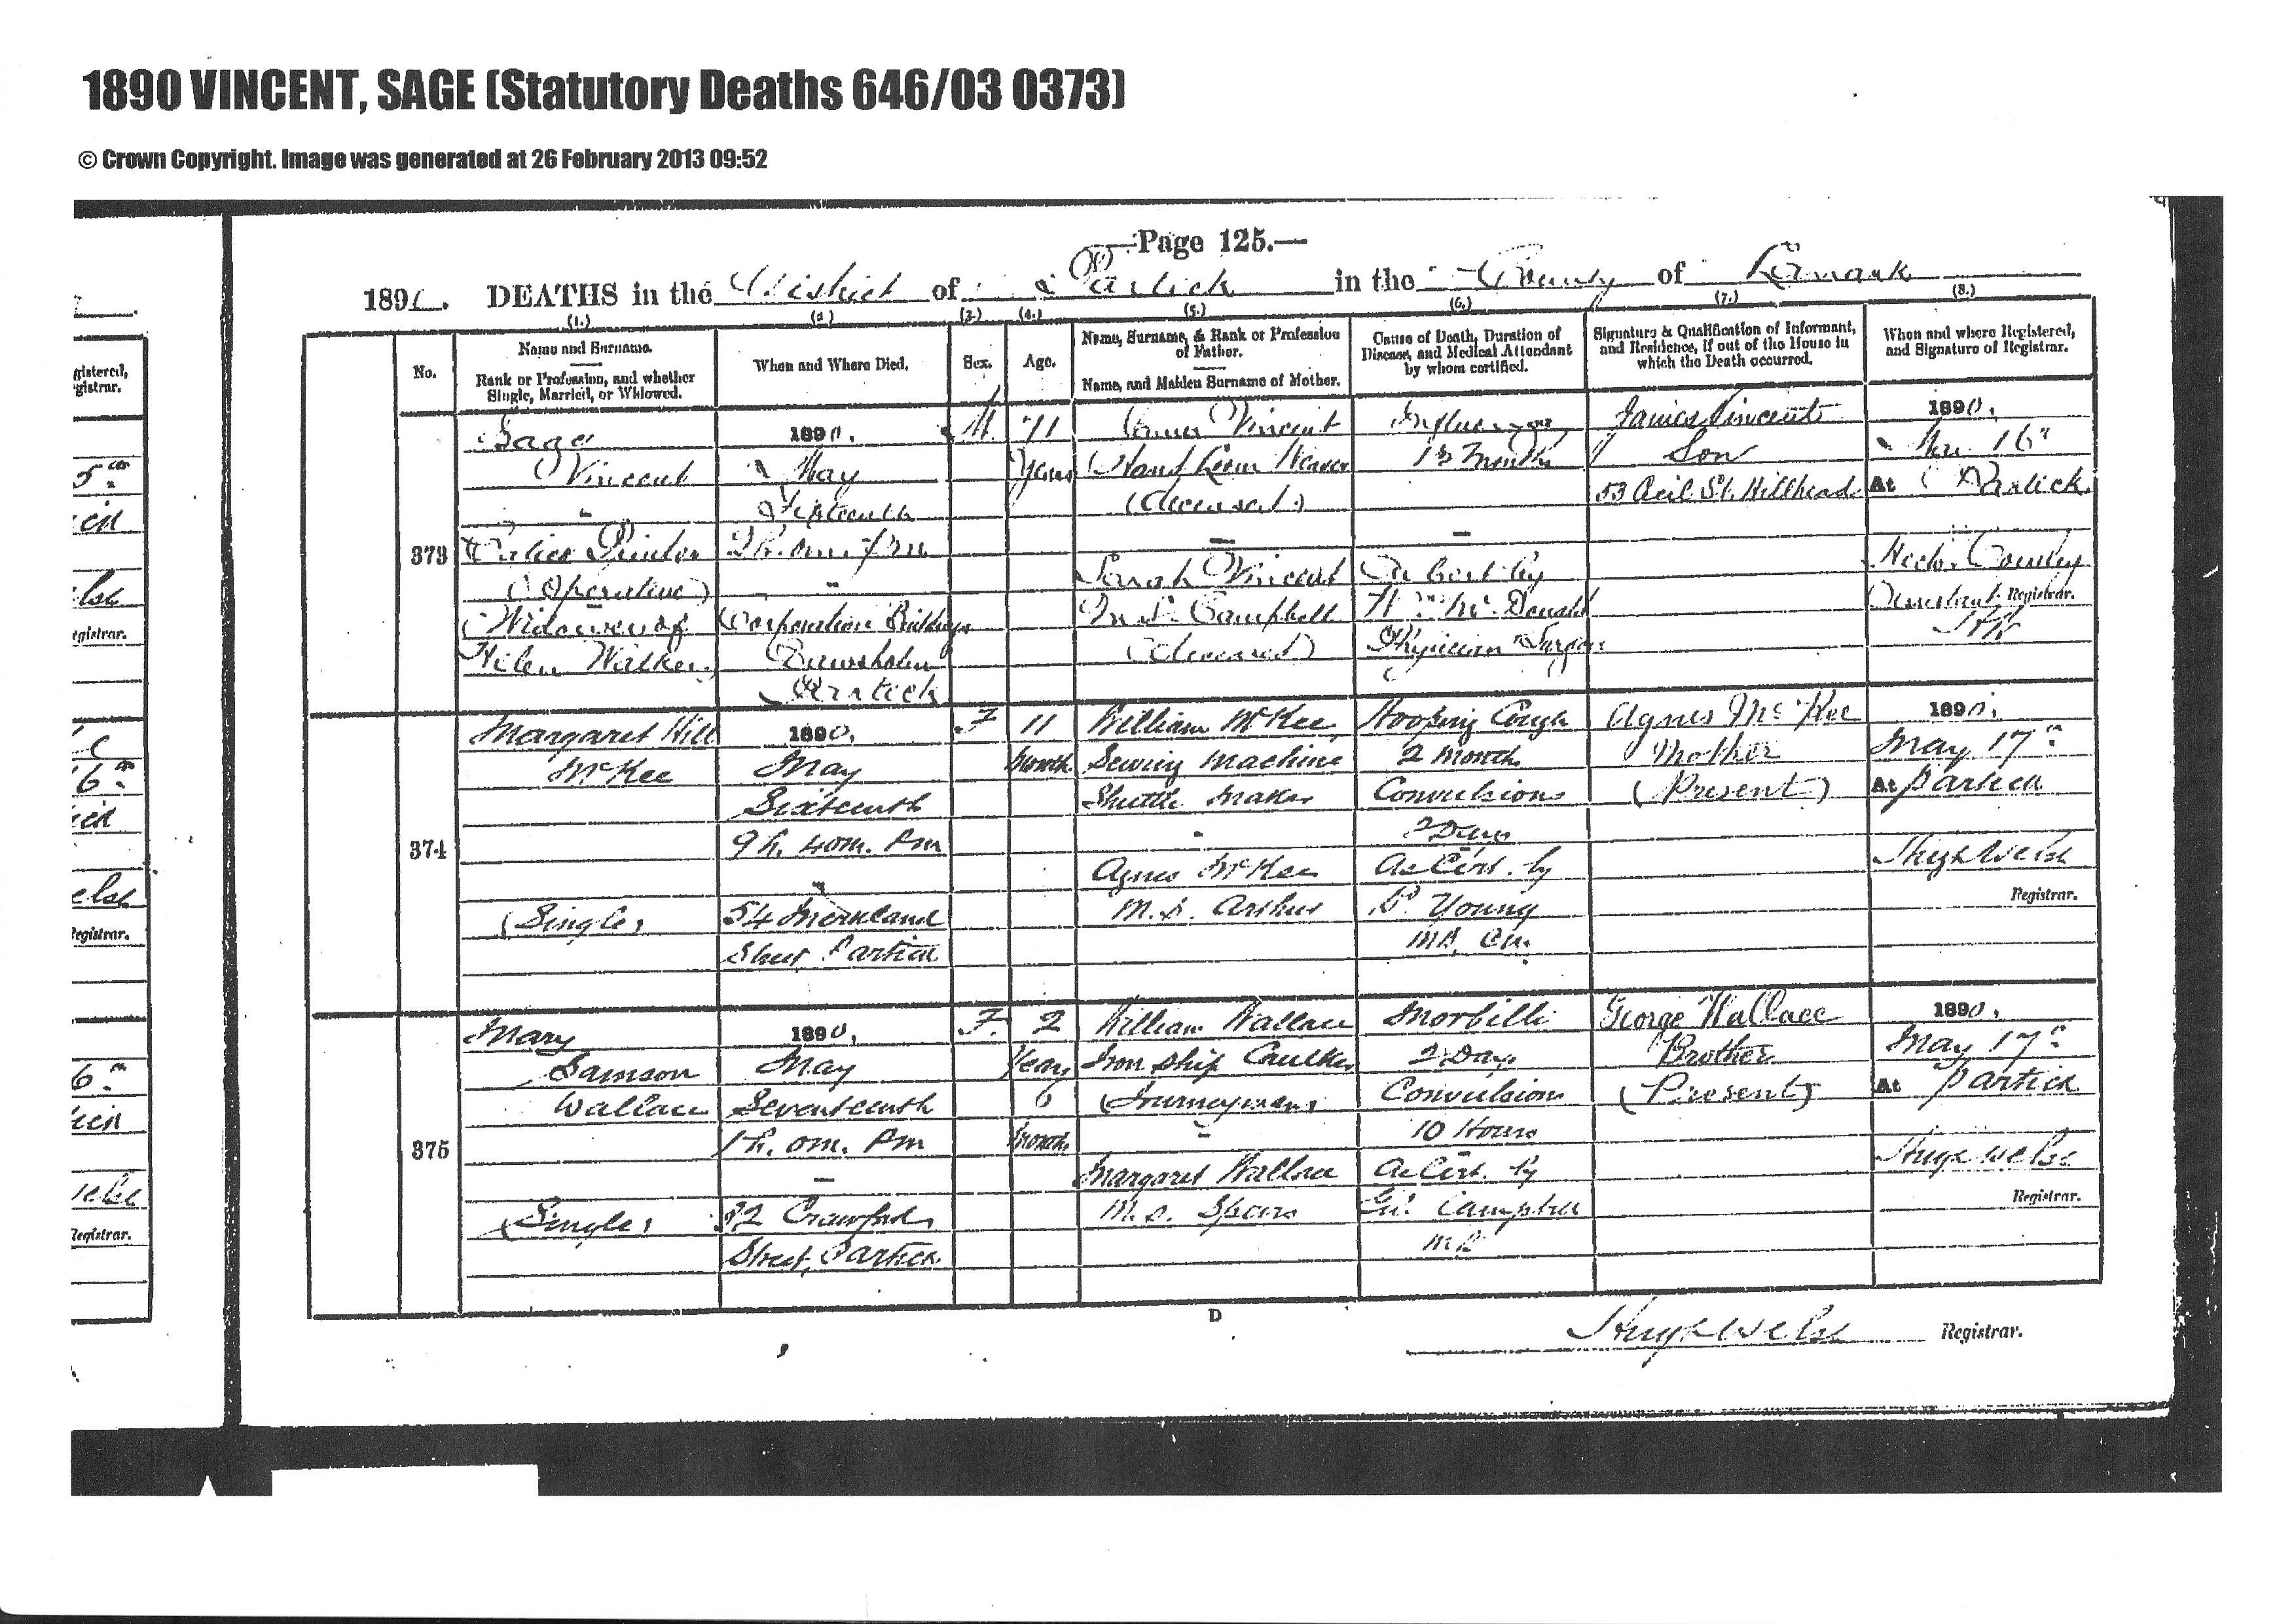 1890 VINCENT, SAGE (Statutory Deaths 646/03 0373)
© Crown Copyright. Image was generated at 26 February 2013 09:52
Page 125.—
1890. DEATHS in the District of Partick in the County of Lanark
(1.) (2) (3.) (4.) (5.) (6.) (7.) (8.)
No.
Name and Surname.
Rank or Profession, and whether
Single, Married, or Widowed.
When and Where Died.
Sex.
Age.
Name, Surname, & Rank or Profession
of Father.
Name, and Maiden Surname of Mother.
Cause of Death, Duration of
Disease, and Medical Attendant
by whom certified.
Signature & Qualification of Informant,
and Residence, if out of the House in
which the Death occurred.
When and where Registered,
and Signature of Registrar.
373
Sage
Vincent
Calico Printer
(Operative)
Widower of
Helen Walker
1890.
May
Fifteenth
Corporation Buildings
Dawsholm
Partick
M.
71
Years
Vincent
Hand Loom Weaver
(deceased)
Sarah Vincent
M.S. Campbell
(deceased)
Influenza
1½ Months
As Cert by
Wm Mc. Donald
Physician & Surgeon
James Vincent
Son
53 Hillhead
1890.
May 16"
At Partick
Assistant Registrar.
374
Margaret Hill
McKee
(Single)
1890.
May
Sixteenth
9 h. 40 m. Pm
54
Street Partick
F
11
Months
William McKee
Sewing Machine
Shuttle Maker
Agnes McKee
M.S. Arthur
Hooping Cough
2 Months
Convulsions
2 Days
As Cert. by
Young
MB, Cm.
Agnes McKee
Mother
(Present)
1890.
May 17"
At Partick
Hugh Welsh
Registrar.
375
Mary
Samson
Wallace
(Single)
1890.
May
Seventeenth
1 h. 0m. Pm
Crawford
Street, Partick
F.
2
Years
6
Months
William Wallace
Iron Ship Caulker
(Journeyman)
Margaret Wallace
M.S. Spears
Morbilli
2 Days
Convulsions
10 Hours
As Cert. by
Geo. Campbell
MB
George Wallace
Brother
(Present)
1890.
May 17"
At Partick
Hugh Welsh
Registrar.
D
Hugh Welsh Registrar.